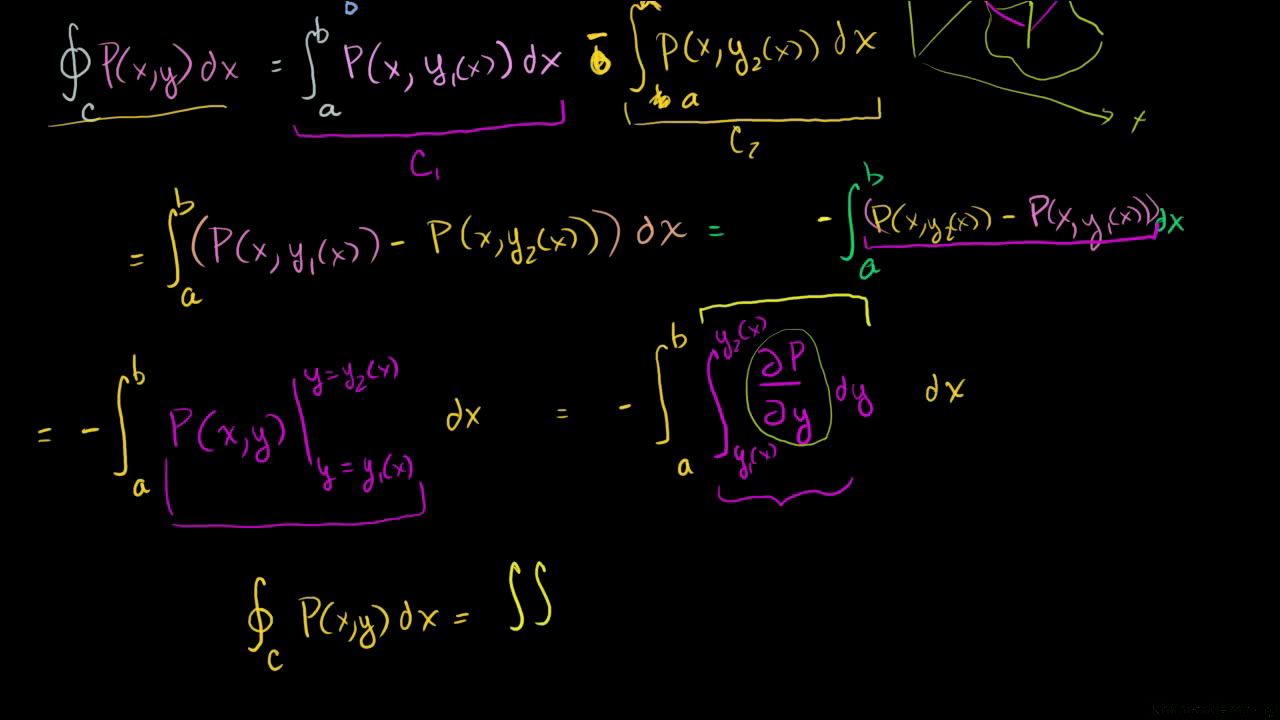 ∮_C P(x,y) dx = ∫_a^b P(x, y₁(x)) dx - ∫_a P(x, y₂(x)) dx
x
C₁ C₂
= ∫_a^b (P(x, y₁(x)) - P(x, y₂(x))) dx = - ∫_a^b (P(x, y₂(x)) - P(x, y₁(x))) dx
= - ∫_a^b P(x,y) |_{y = y₁(x)}^{y = y₂(x)} dx = - ∫_a^b ∫_{y₁(x)}^{y₂(x)} ∂P/∂y dy dx
∮_C P(x,y) dx = ∫∫